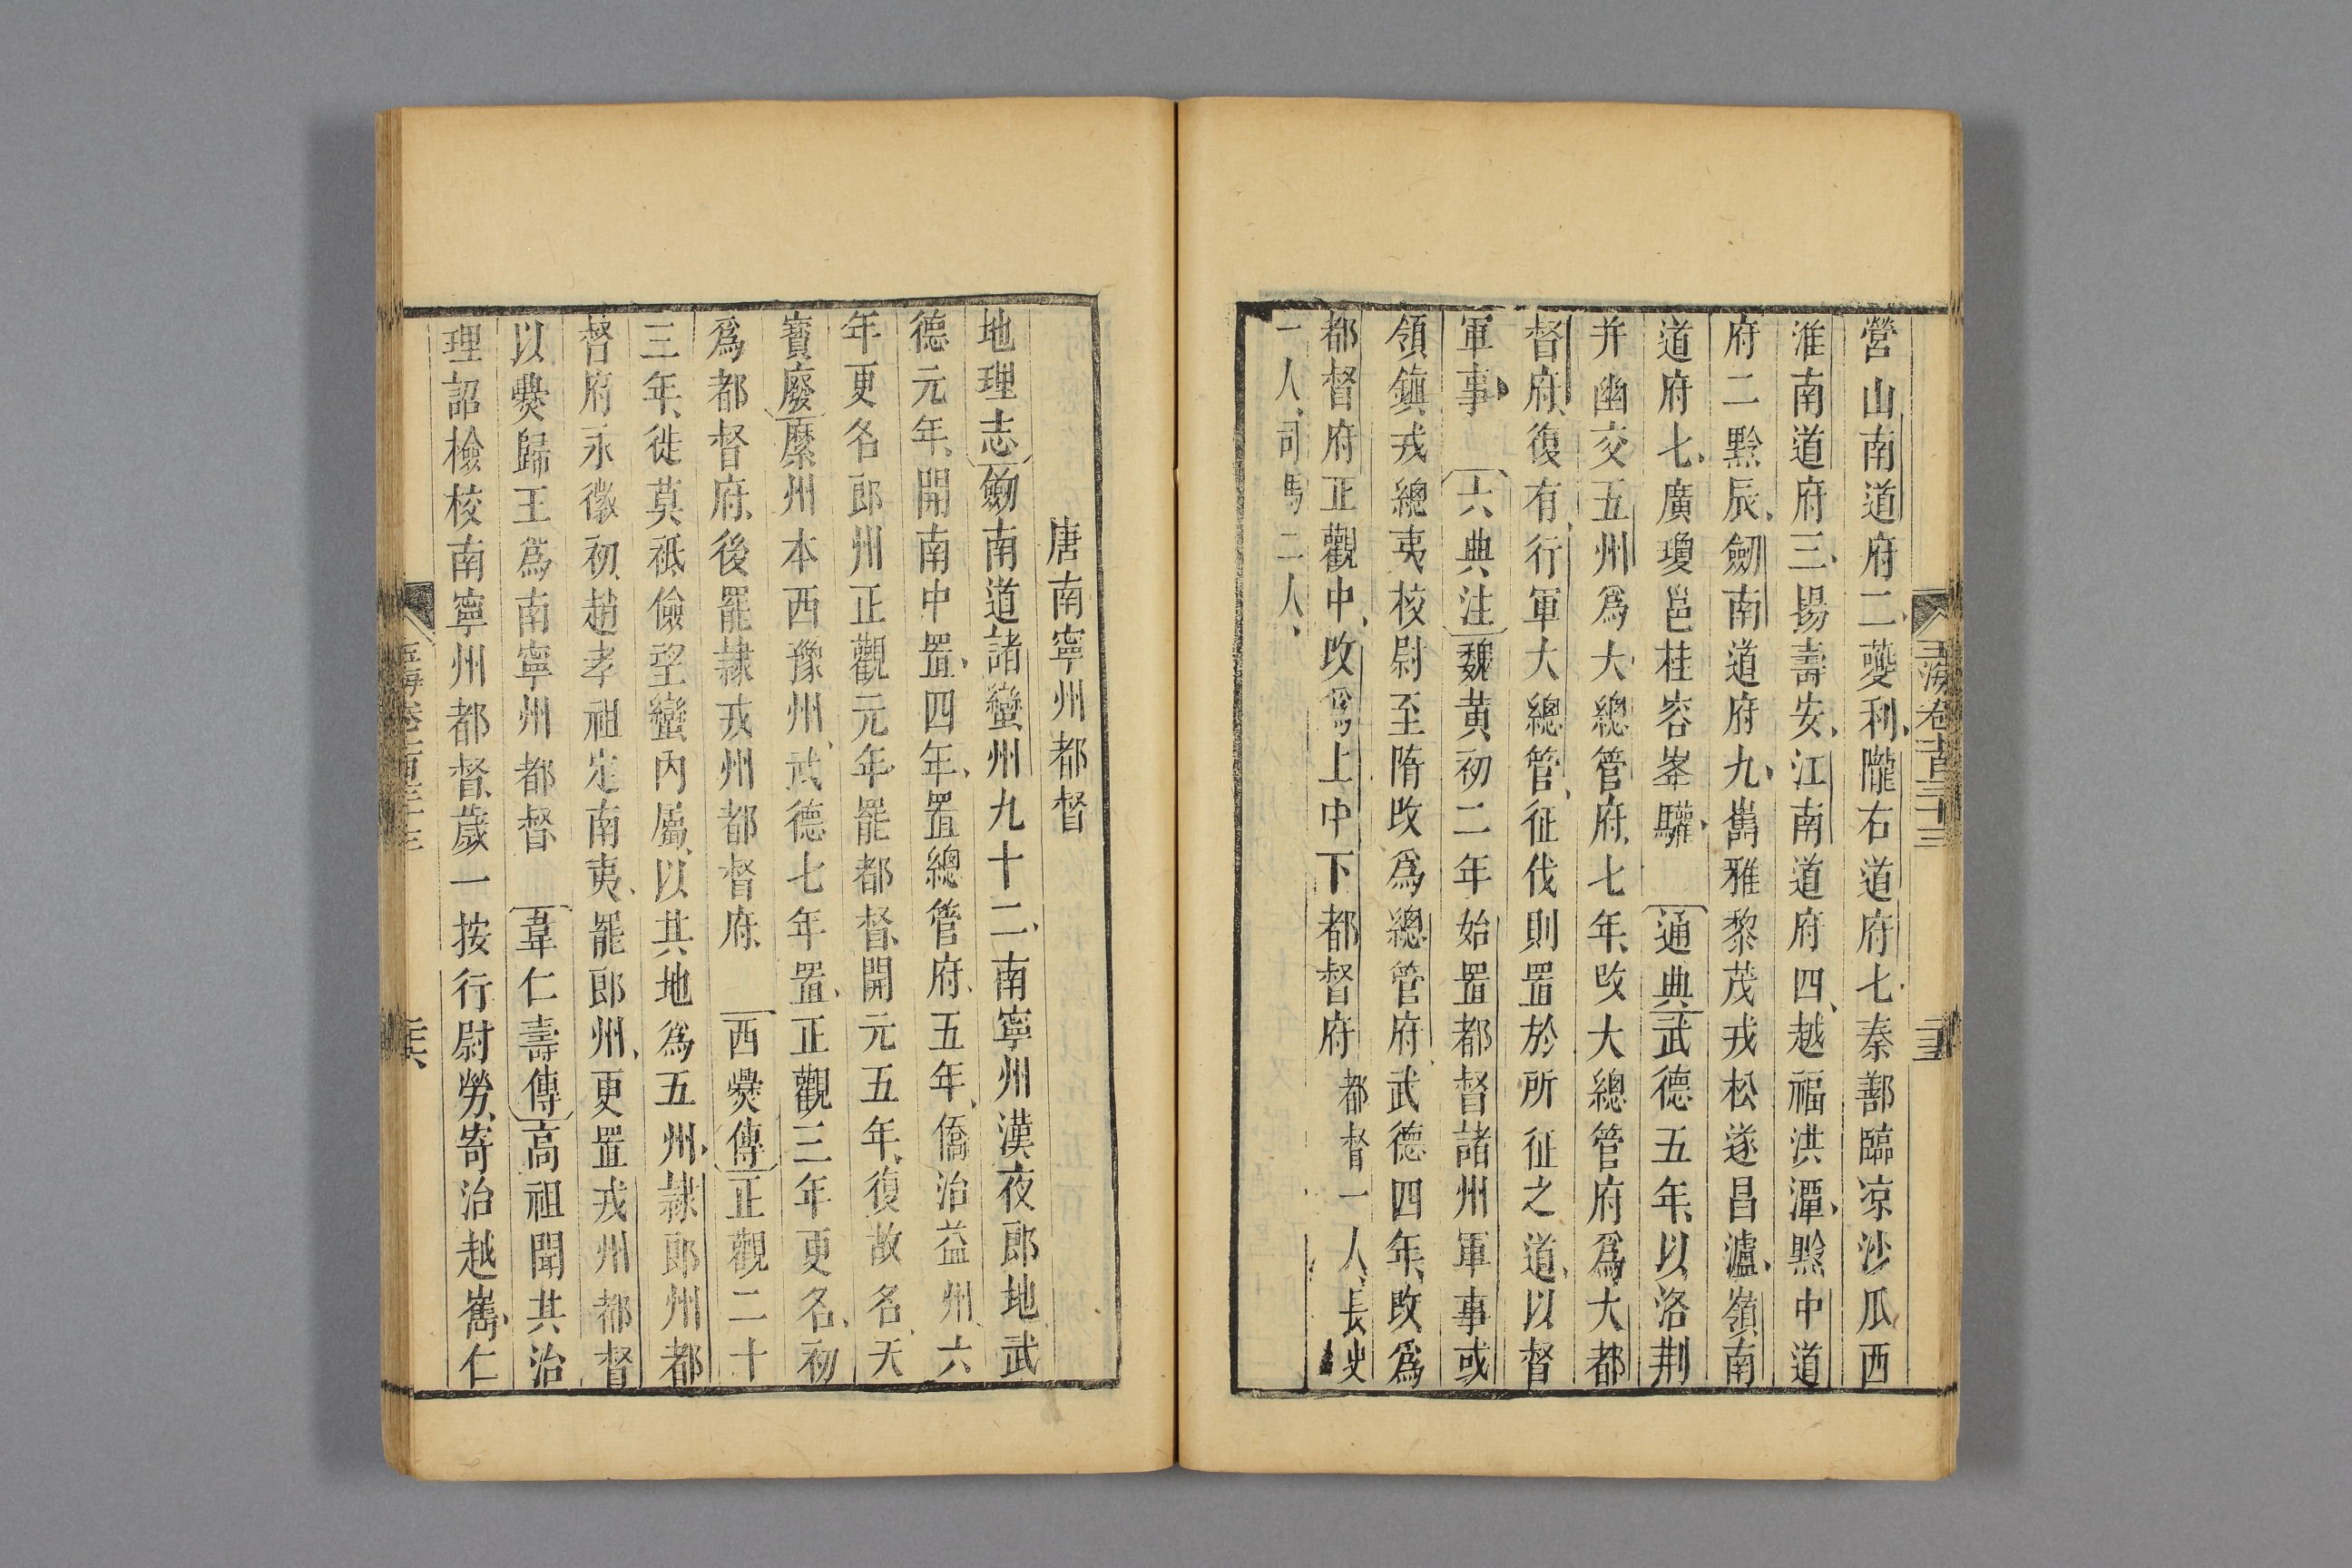 營山南道府二夔利隴右道府七秦鄯臨凉沙瓜西
淮南道府三揚壽安江南道府四越福洪潭黔中道
府二黔辰劒南道府九巂雅黎茂戎松遂昌瀘嶺南
道府七廣瓊邕桂容峯驩 通典武德五年以洛荆
并幽交五州爲大總管府七年改大總管府爲大都
督府復有行軍大總管征伐則置於所征之道以督
軍事 六典注魏黄初二年始置都督諸州軍事或
領鎮戎總夷校尉至隋改爲總管府武德四年改爲
都督府正觀中改爲上中下都督府都督一人長史
一人司馬二人
玉海卷一百三十三
唐南寧州都督
地理志劒南道諸蠻州九十二南寧州漢夜郎地武
德元年開南中置四年置總管府五年僑治益州六
年更名郎州正觀元年罷都督開元五年復故名天
寳廢縻州本西豫州武德七年置正觀三年更名初
爲都督府後罷隷戎州都督府 西爨傳正觀二十
三年徙莫祗儉望蠻内屬以其地爲五州隷郎州都
督府永徽初趙孝祖定南夷罷郎州更置戎州都督
以爨歸王爲南寧州都督 韋仁壽傳高祖聞其治
理詔檢校南寧州都督歲一按行尉勞寄治越巂仁